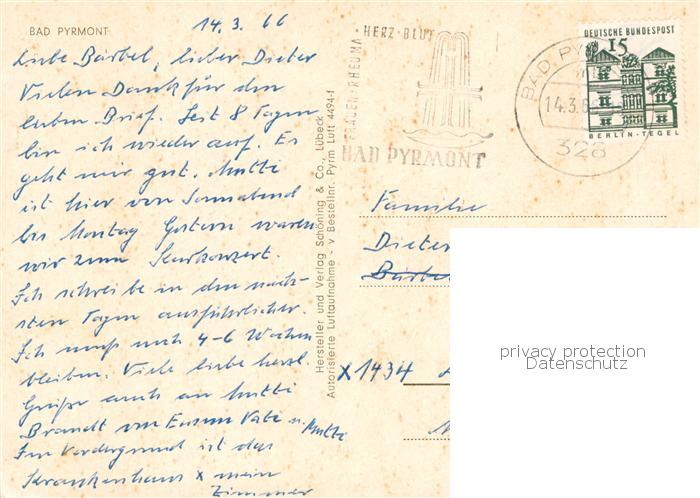 BAD PYRMONT
14. 3. 66
Liebe Bärbel, lieber Dieter
Vielen Dank für den
lieben Brief. Seit 8 Tagen
bin ich wieder auf. Es
geht mir gut. Mutti
ist hier von Sonnabend
bis Montag Gestern waren
wir zum Kurkonzert.
Ich schreibe in den näch-
sten Tagen ausführlicher.
Ich muß noch 4-6 Wochen
bleiben. Viele liebe herzl.
Grüße auch an Mutti
Brandt von Eurem Vati u. Mutti
Im Vordergrund ist das
Krankenhaus x mein
Zimmer
Hersteller und Verlag Schöning & Co., Lübeck
Autorisierte Luftaufnahme - V Bestellnr. Pyrm Luft 4494-f
FRAUEN·RHEUMA·HERZ·BLUT
BAD PYRMONT
BAD PY
14.3.6
328
DEUTSCHE BUNDESPOST
15
BERLIN-TEGEL
Familie
Dieter
Bärbel
x1434
privacy protection
Datenschutz